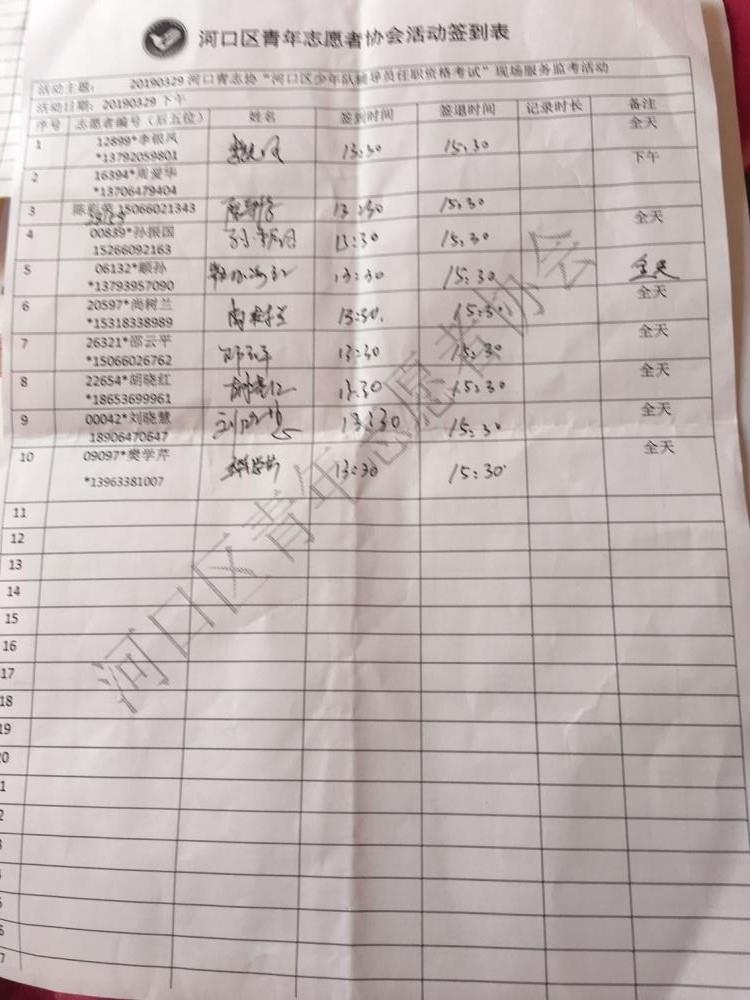 河口区青年志愿者协会活动签到表
活动主题： 20190329河口青志协“河口区少年队辅导员任职资格考试”现场服务监考活动
活动日期：20190329下午
序号 志愿者编号（后五位） 姓名 签到时间 签退时间 记录时长 备注
1 12899*李银凤 13:30 15:30 全天
*13792059801
2 16394*周爱华 下午
*13706479404
3 15066021343 13:30 15:30
4 00839*孙振国 13:30 15:30 全天
15266092163
5 06132*顺孙 13:30 15:30 全天
*13793957090
6 20597*尚树兰 13:30 15:30 全天
*15318338989
7 26321*邵云平 13:30 15:30 全天
*15066026762
8 22654*胡晓红 13:30 15:30 全天
*18653699961
9 00042*刘晓慧 13:30 15:30 全天
18906470647
10 09097*樊学芹 樊学芹 13:30 15:30 全天
*13963381007
11
12
13
14
15
16
17
18
19
河口区青年志愿者协会